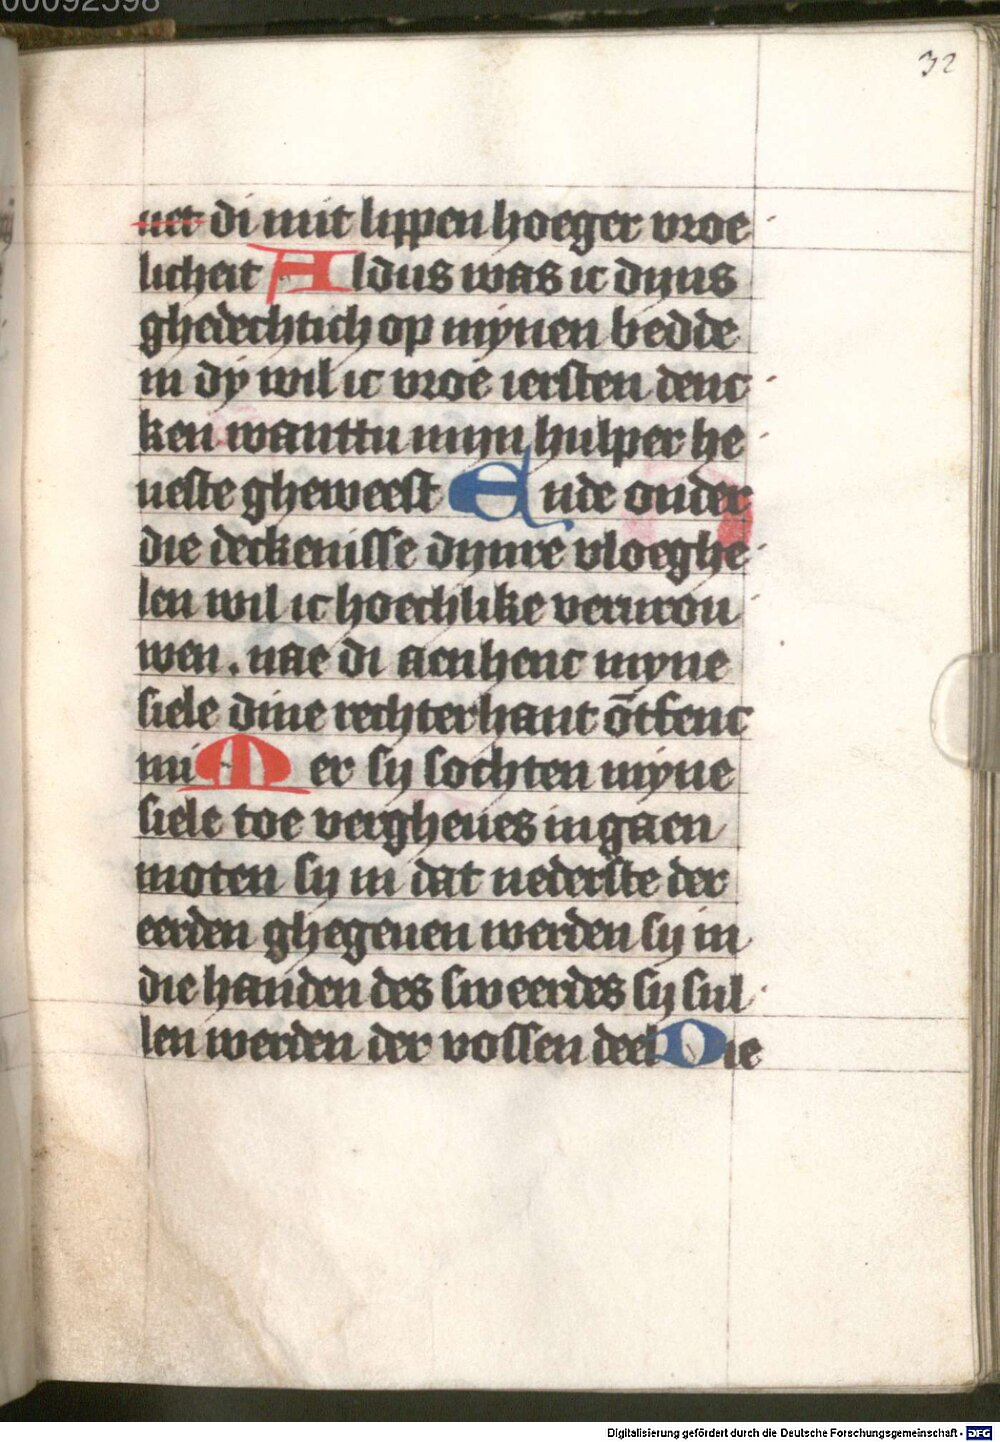 00092598
32
uet di mit lippen hoeger vroe
licheit Aldus was ic dijns
ghedechtich op mijnen bedde
in dy wil ic vroe iersten denc
ken wanttu mijn hulper he
ueste gheweest Ende onder
die deckenisse dijnre vloeghe
len wil ic hoechlike verurou
wen . nae di aenhenc mijne
siele dine rechterhant ōtfenc
mi Mer sij sochten mijne
siele toe vergheues ingaen
moten sij in dat nederste der
eerden ghegeuen werden sij in
die handen des sweerdes sij sul
len werden der vossen deel Die
Digitalisierung gefördert durch die Deutsche Forschungsgemeinschaft - DFG